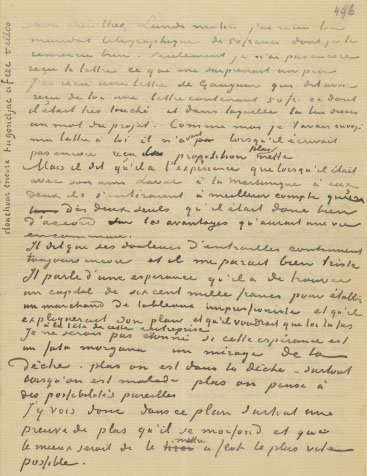 496
Mon cher Theo, Lundi matin j'ai reçu ton
mandat télégraphique de 50 francs dont je te
remercie bien. Seulement je n'ai pas encore
reçu ta lettre ce que me surprenait un peu
J'ai reçu une lettre de Gauguin que dit avoir
reçu de toi une lettre contenant 50 fr. ce dont
il était très touché et dans laquelle tu lui disais
un mot du projet. Comme moi je t'avais envoyé
ma lettre à lui il n'avait lorsqu'il écrivait
pas encore reçu la proposition plus nette
Mais il dit qu'il a l'experience que lorsqu'il était
avec son ami Laval à la Martinique à eux
deux ils s'entiraient à meilleur compte que
à deux seuls qu'il était donc bien
d'accord sur les avantages qu'aurait une vie
en commun.
Il dit que ses douleurs d'entrailles continuent
toujours encore et il me parait bien triste
Il parle d'une esperance qu'il a de trouver
un capital de six cent mille francs pour établir
un marchand de tableaux impressioniste et qu'il
expliquerait son plan et qu'il voudrait que toi tu fus
à la tête de cette entreprise
Je ne serais pas étonné si cette espérance est
un fata morgana un mirage de la
dêche. plus on est dans la dêche – surtout
lorsqu'on est malade plus on pense à
des possibilités pareilles
J'y vois donc dans ce plan surtout une
preuve de plus qu'il se morfond et que
le mieux serait de le mettre à flot le plus vite
possible.